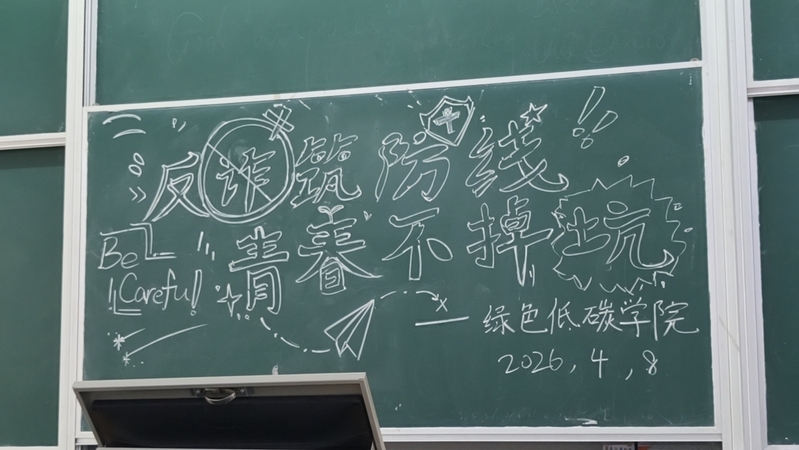 反诈筑防线!!
青春不掉坑
Be
Careful!
——绿色低碳学院
2026.4.8